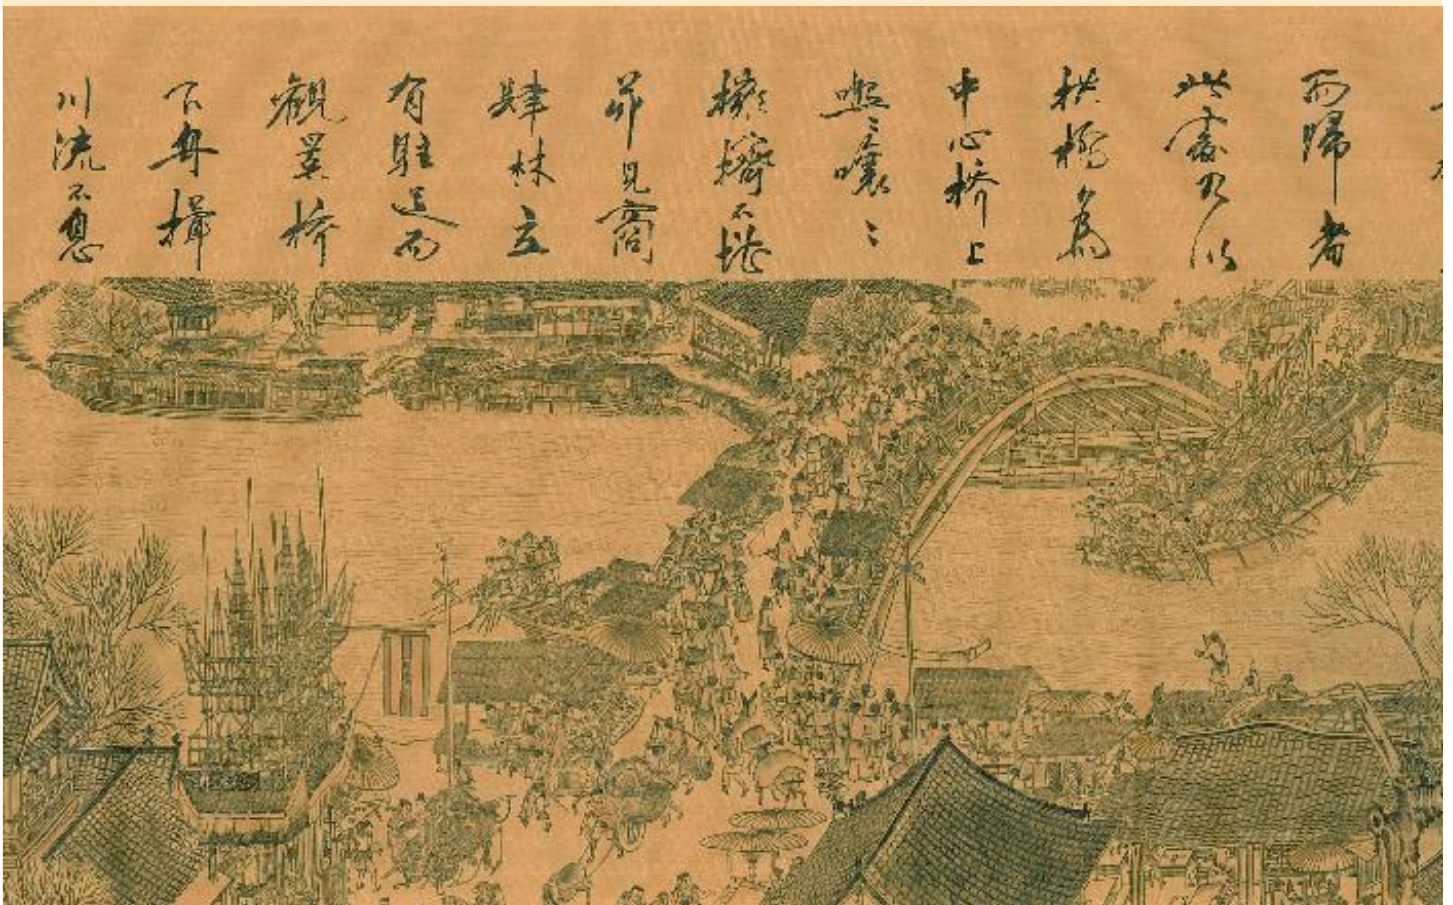 而歸者
此處乃以
拱橋為
中心桥上
熙〻嚷〻
擁擠不堪
見商
肆林立
有駐足而
觀景桥
下舟楫
川流不息